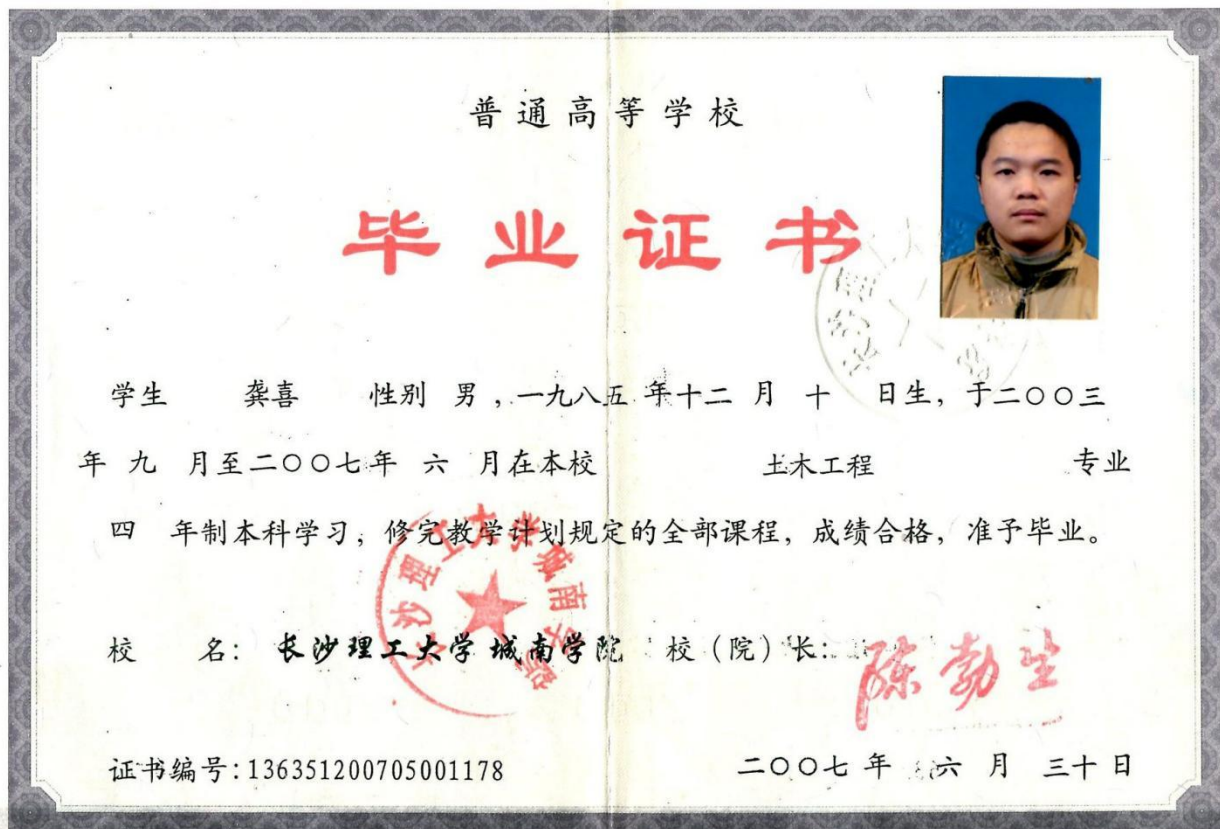 普通高等学校
毕业证书
学生 龚喜 性别 男，一九八五 年十二 月 十 日生，于二〇〇三
年 九 月至二〇〇七年 六 月在本校 土木工程 专业
四 年制本科学习，修完教学计划规定的全部课程，成绩合格，准予毕业。
长沙理工大学城南学院
校 名：长沙理工大学城南学院 校（院）长：陈勃生
证书编号：136351200705001178 二〇〇七 年 六 月 三十 日